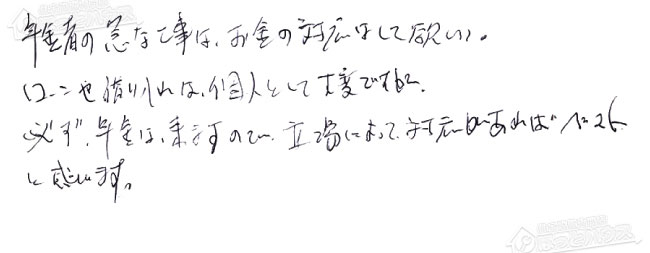 年金者の急な工事は、お金の対応はして欲しい。
ローンや借り入れは、個人として大変ですが、
必ず、年金は、来ますので、立場によって、対応があれば
と感じます。